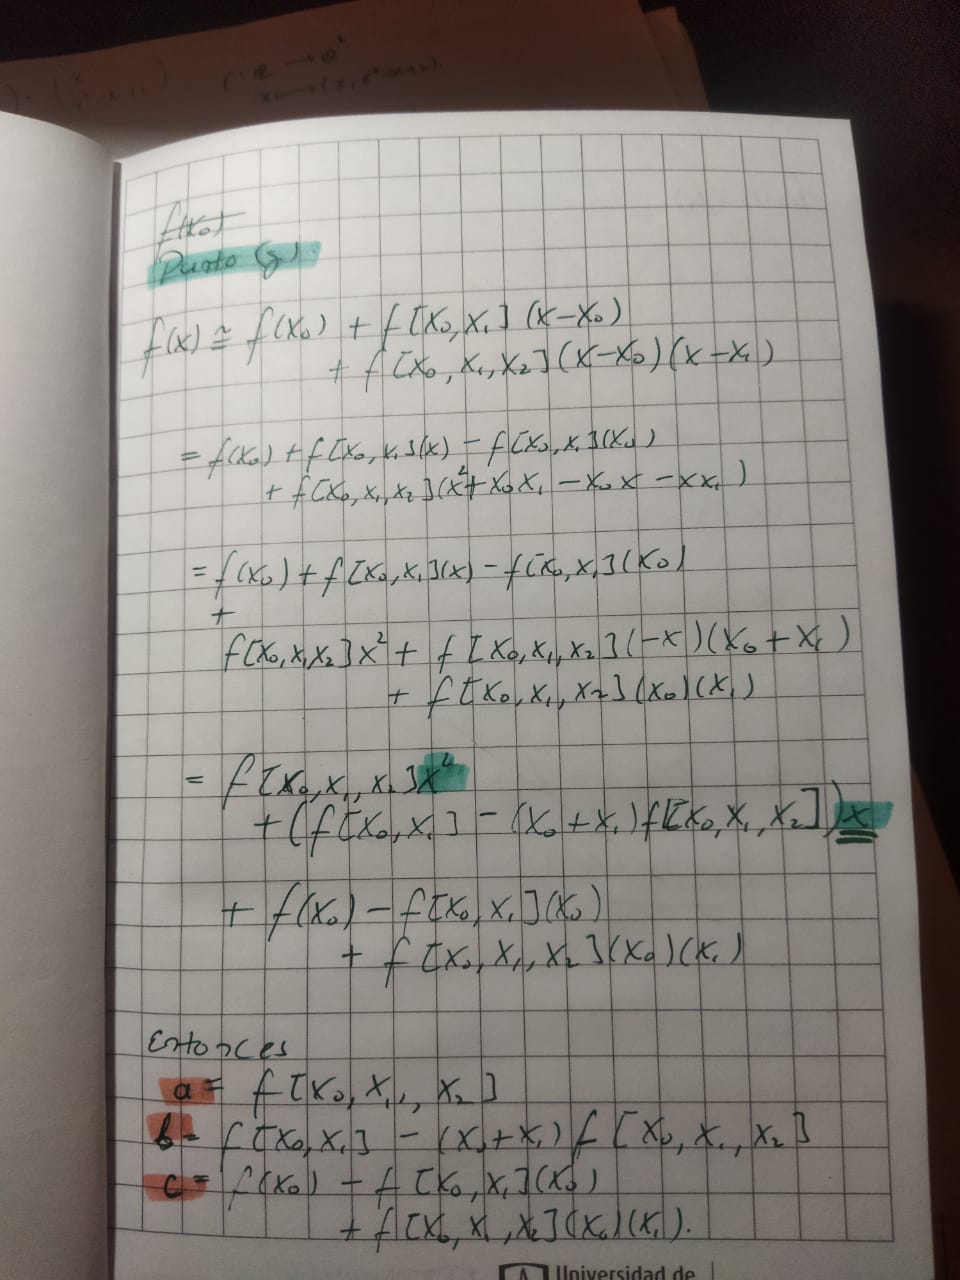 f: ℝ → ℝ²
f(x₀)
Punto (g)
f(x) ≅ f(x₀) + f[x₀,x₁](x-x₀)
+ f[x₀,x₁,x₂](x-x₀)(x-x₁)
= f(x₀) + f[x₀,x₁](x) - f[x₀,x₁](x₀)
+ f[x₀,x₁,x₂](x²+x₀x₁-x₀x-xx₁)
= f(x₀) + f[x₀,x₁](x) - f[x₀,x₁](x₀)
+
f[x₀,x₁,x₂]x² + f[x₀,x₁,x₂](-x)(x₀+x₁)
+ f[x₀,x₁,x₂](x₀)(x₁)
= f[x₀,x₁,x₂]x²
+(f[x₀,x₁] - (x₀+x₁)f[x₀,x₁,x₂])x
+ f(x₀) - f[x₀,x₁](x₀)
+ f[x₀,x₁,x₂](x₀)(x₁)
Entonces
a = f[x₀,x₁,x₂]
b = f[x₀,x₁] - (x₀+x₁)f[x₀,x₁,x₂]
c = f(x₀) - f[x₀,x₁](x₀)
+ f[x₀,x₁,x₂](x₀)(x₁).
Universidad de